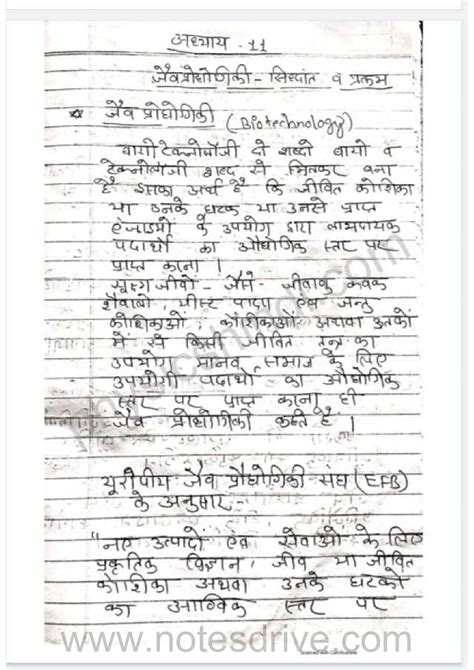 अध्याय - 11
जैवप्रौद्योगिकी - सिद्धांत व प्रक्रम
जैव प्रौद्योगिकी (Biotechnology)
बायोटेक्नोलॉजी दो शब्दो बायो व
टेक्नोलॉजी शब्द से मिलकर बना
है इसका अर्थ है कि जीवित कोशिका
या उनके घटक या उनसे प्राप्त
एंजाइमों के उपयोग द्वारा लाभदायक
पदार्थो का औद्योगिक स्तर पर
प्राप्त करना।
सूक्ष्म जीवो - जैसे - जीवाणु कवक
शैवालो, यीस्ट पादप एवं जन्तु
कोशिकाओं, कोशिकाओं अथवा ऊतकों
में से किसी जीवित तन्त्र का
उपयोग मानव समाज के लिए
उपयोगी पदार्थो का औद्योगिक
स्तर पर प्राप्त करना ही
जैव प्रौद्योगिकी कहते है।
यूरोपीय जैव प्रौद्योगिकी संघ (EFB)
के अनुसार -
"नए उत्पादों एवं सेवाओं के लिए
प्रकृतिक विज्ञान, जीव या जीवित
कोशिका अथवा उनके घटकों
का आण्विक स्तर पर
www.notesdrive.com